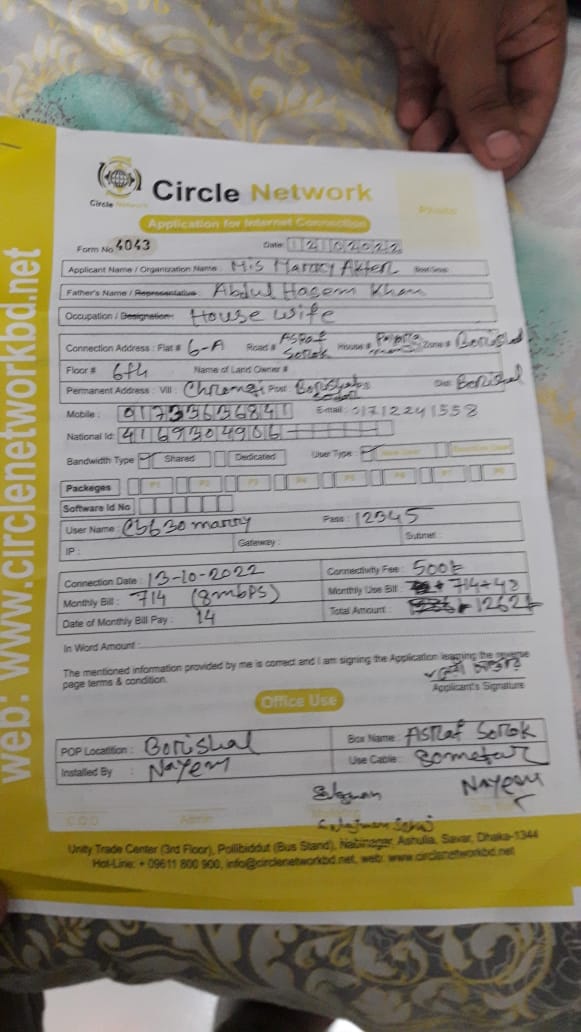 web: www.circlenetworkbd.net
Circle Network
Circle Network
Application for Internet Connection
Photo
Form No. 4043
Date:
Applicant Name / Organization Name : Mis Marry Akter
Father's Name / Representative : Abdul Hasem Khan
Occupation / Designation: House wife
Connection Address : Flat # 6-A Road # Asraf Sorok House # Zone # Borishal
Floor # 6th Name of Land Owner #
Permanent Address : Vill : Post : Dist: Borishal
Mobile :
E-mail : 01712241558
National Id: 4169304906
Bandwidth Type Shared Dedicated User Type :
Packeges P1 P2 P3 P4 P5 P6 P7 P8
Software Id No
User Name : Pass : 12345
IP : Gateway : Subnet :
Connection Date : 13-10-2022 Connectivity Fee : 500t
Monthly Bill : 714 (8mbps) Monthly Use Bill : + 714+48
Date of Monthly Bill Pay : 14 Total Amount : 1262t
In Word Amount :
The mentioned information provided by me is correct and I am signing the Application learning the reverse
page terms & condition.
Applicant's Signature
Office Use
POP Locatition : Borishal Box Name : Astraf Sorok
Installed By : Nayem Use Cable : 80meter
Nayem
C.O.O Admin
Unity Trade Center (3rd Floor), Pollibiddut (Bus Stand), Nabinagar, Ashulia, Savar, Dhaka-1344
Hot-Line: + 09611 800 900, info@circlenetworkbd.net, web: www.circlenetworkbd.net